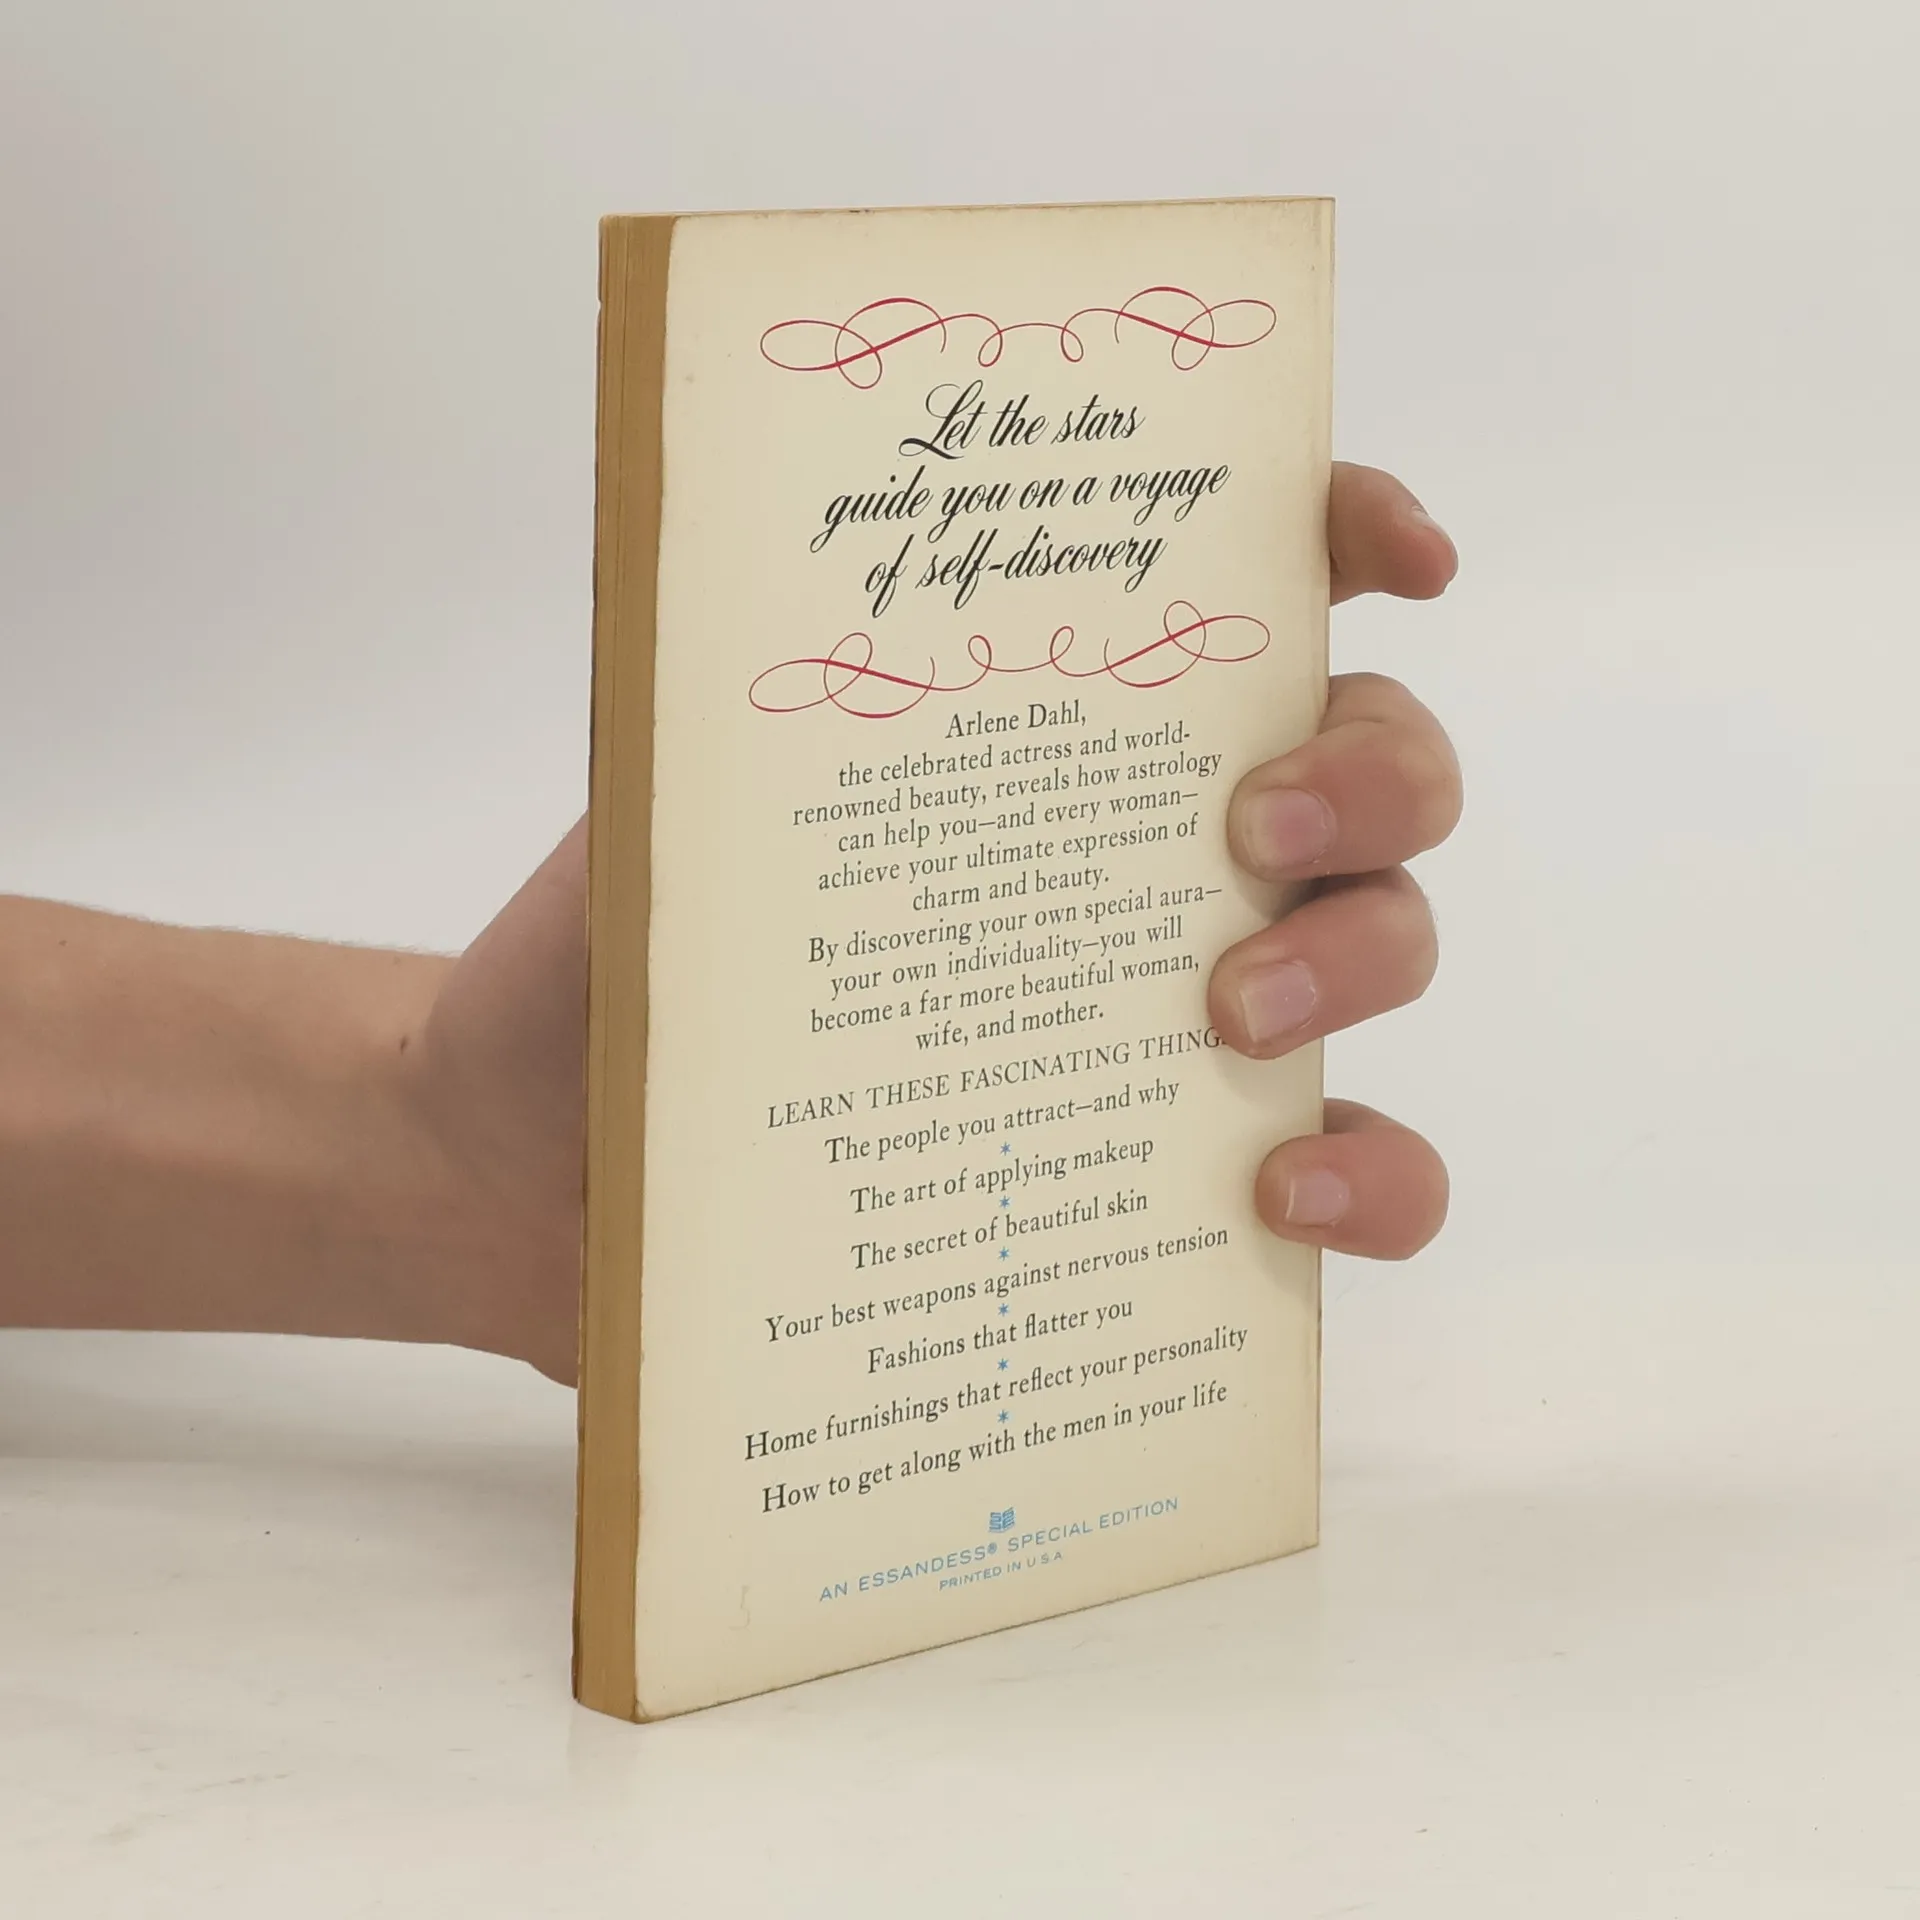 Let the stars
guide you on a voyage
of self-discovery
Arlene Dahl,
the celebrated actress and world-
renowned beauty, reveals how astrology
can help you—and every woman—
achieve your ultimate expression of
charm and beauty.
By discovering your own special aura—
your own individuality—you will
become a far more beautiful woman,
wife, and mother.
LEARN THESE FASCINATING
The people you attract—and why
*
The art of applying makeup
*
The secret of beautiful skin
*
Your best weapons against nervous tension
*
Fashions that flatter you
*
Home furnishings that reflect your personality
*
How to get along with the men in your life
AN ESSANDESS® SPECIAL EDITION
PRINTED IN U.S.A.